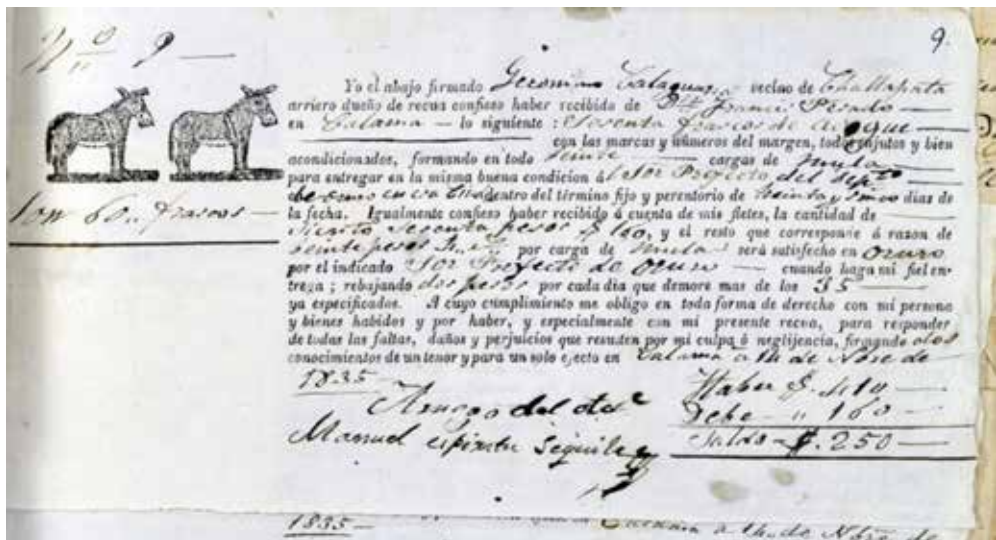 Nº 9
9.
Yo el abajo firmado Geronimo vecino de Challapata
arriero dueño de recua confieso haber recibido de Dn Franco
en Calama lo siguiente : Sesenta frascos de
con las marcas y números del margen, todo enjutos y bien
acondicionados, formando en todo veinte cargas de mula
para entregar en la misma buena condicion á l Sor Prefecto del depto
de oruro dentro del término fijo y perentorio de treinta y sinco dias de
la fecha. Igualmente confieso haber recibido á cuenta de mis fletes, la cantidad de
Siento Sesenta pesos $ 160, y el resto que corresponde á razon de
veinte pesos por carga de mula será satisfecho en oruro
por el indicado Sor Prefecto de Oruro cuando haga mi fiel en-
trega ; rebajando dos pesos por cada dia que demore mas de los 35
ya especificados. A cuyo cumplimiento me obligo en toda forma de derecho con mi persona
y bienes habidos y por haber, y especialmente con mi presente recua, para responder
de todas las faltas, daños y perjuicios que resulten por mi culpa ó neglijencia, firmando dos
conocimientos de un tenor y para un solo efecto en Calama a 14 de Nbre de
1835
Son 60 frascos
Haber $. 410
Debe " 160
Saldo $. 250
Aruego del
Manuel espiritu
1835
Calama a 14 de Nbre de